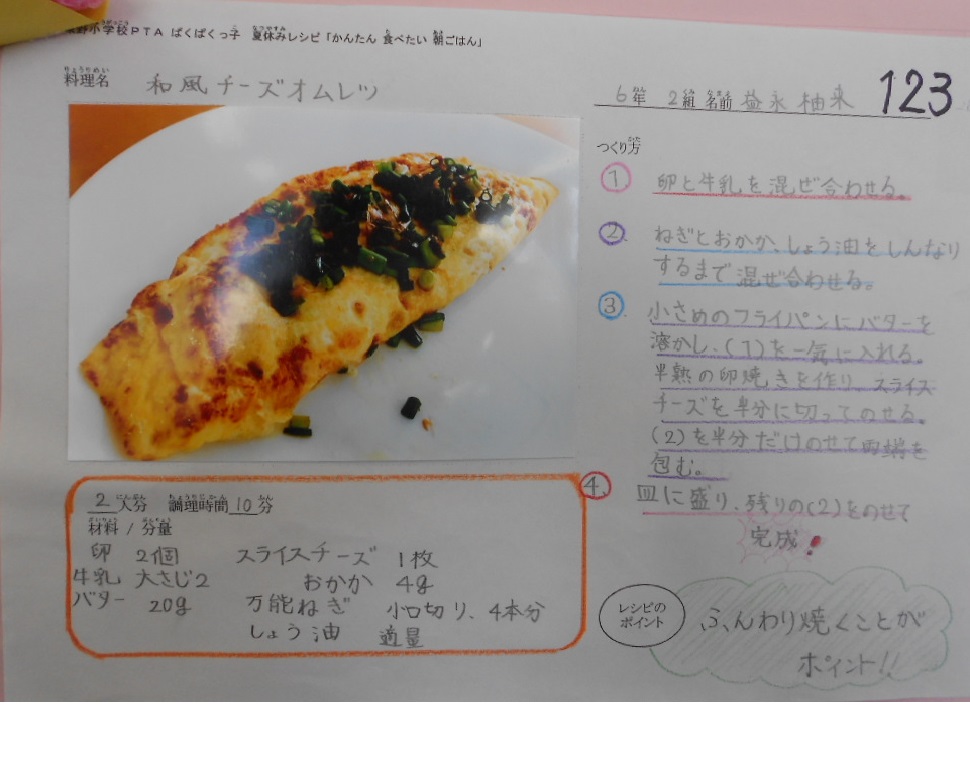 野小学校PTA ぱくぱくっ子 夏休みレシピ「かんたん 食べたい 朝ごはん」
料理名 和風チーズオムレツ
6年 2組 名前 益永 柚来 123
つくり方
① 卵と牛乳を混ぜ合わせる。
② ねぎとおかか、しょう油をしんなり
するまで混ぜ合わせる。
③ 小さめのフライパンにバターを
溶かし、(1)を一気に入れる。
半熟の卵焼きを作り、スライス
チーズを半分に切ってのせる。
(2)を半分だけのせて両端を
包む。
4. 皿に盛り、残りの(2)をのせて
完成!
2人分 調理時間10分
材料 / 分量
卵 2個 スライスチーズ 1枚
牛乳 大さじ2 おかか 4g
バター 20g 万能ねぎ 小口切り、4本分
しょう油 適量
レシピの
ポイント
ふんわり焼くことが
ポイント!!